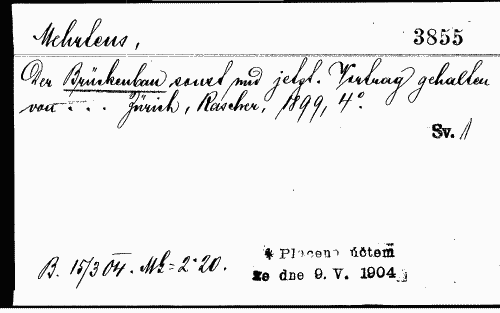 Mehrtens,
3855
Der Brückenbau sonst und jetzt. Vortrag gehalten
von . . . Zürich, Rascher, 1899, 4°.
Sv. 1
B. 15/3 04. Mk = 2·20.
* Placeno účtem
ze dne 9. V. 1904